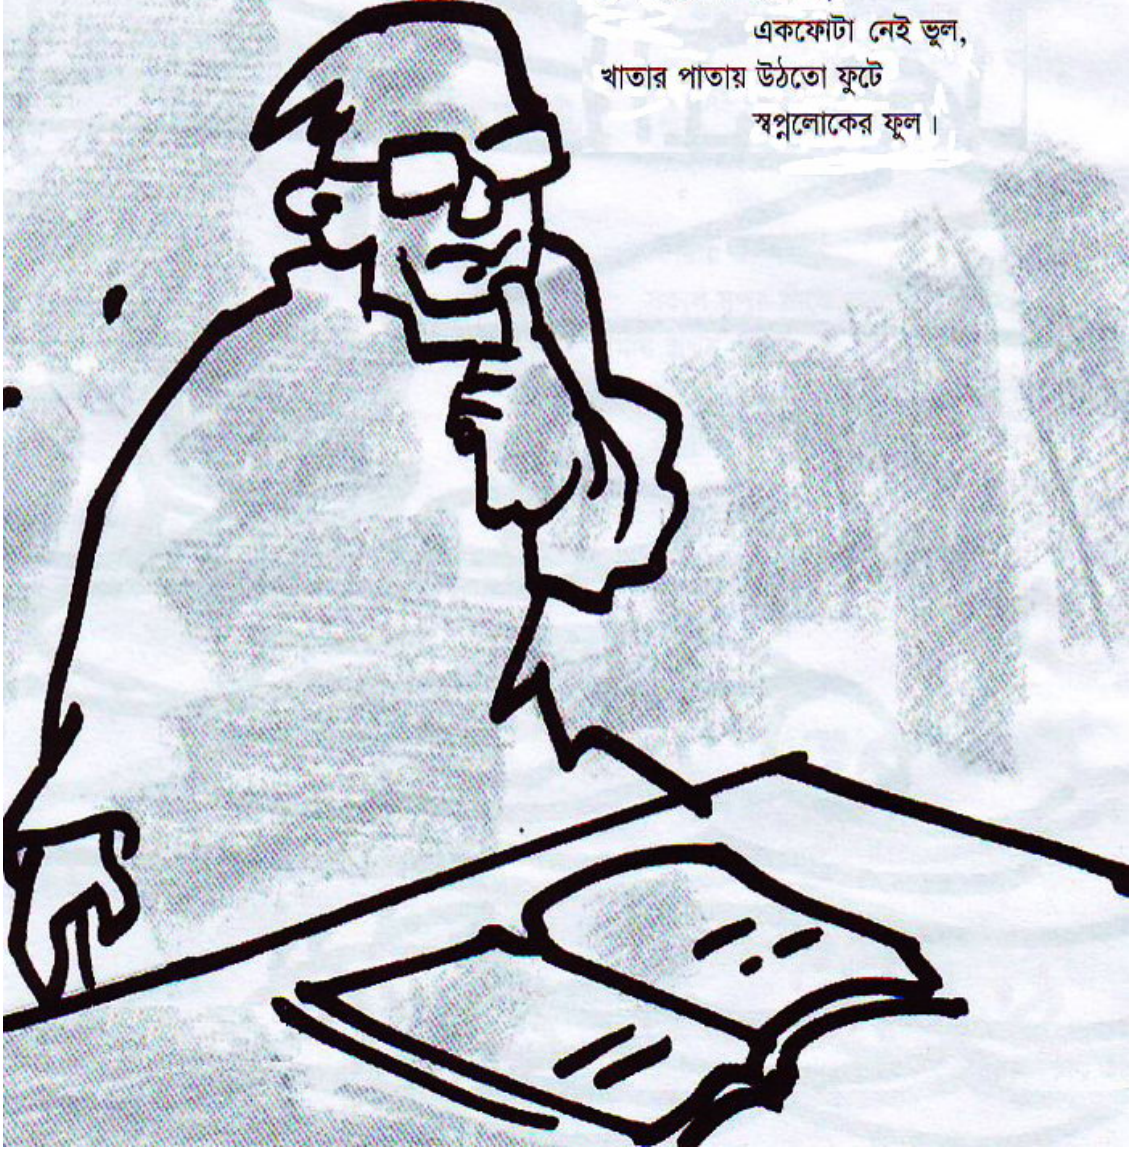 একফোটা নেই ভুল,
খাতার পাতায় উঠতো ফুটে
স্বপ্নলোকের ফুল।